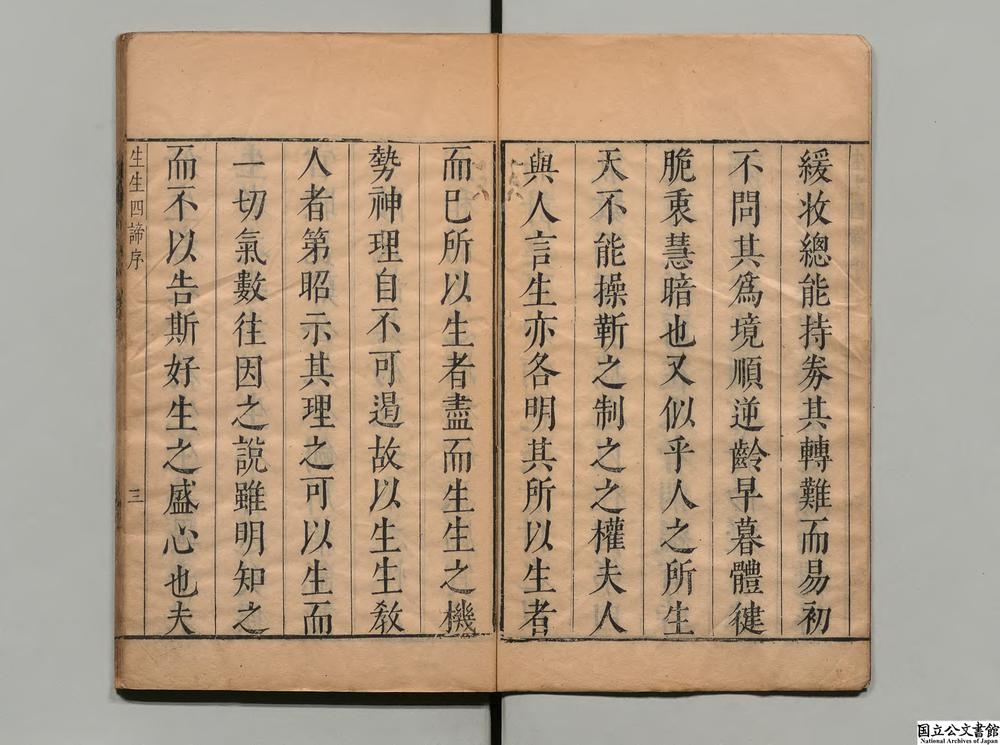 緩收總能持券其轉難而易初
不問其爲境順逆齡早暮體健
脆衷慧暗也又似乎人之所生
天不能操靳之制之之權夫人
與人言生亦各明其所以生者
而巳所以生者盡而生生之機
勢神理自不可遏故以生生敎
人者第昭示其理之可以生而
一切氣數往因之說雖明知之
而不以告斯好生之盛心也夫
生生四諦序
三
国立公文書館
National Archives of Japan